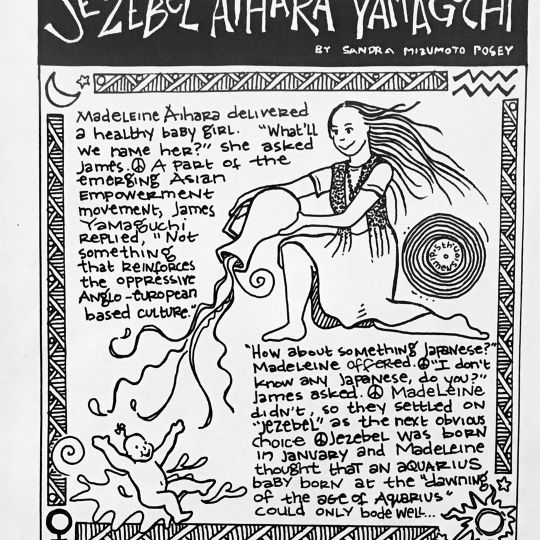 JEZEBEL AIHARA YAMAGUCHI
BY SANDRA MIZUMOTO POSEY
Madeleine Aihara delivered
a healthy baby girl. "What'll
we name her?" she asked
James. ☮ A part of the
emerging Asian
Empowerment
movement, James
Yamaguchi
replied, "Not
something
that reinforces
the oppressive
Anglo-European
based culture."
5th
Dimension
"How about something Japanese?"
Madeleine offered. ☮ "I don't
know any Japanese, do you?"
James asked. ☮ Madeleine
didn't, so they settled on
"Jezebel" as the next obvious
choice ☮ Jezebel was born
in January and Madeleine
thought that an AQUARIUS
baby born at the "dawning
of the age of Aquarius"
could only bode well...